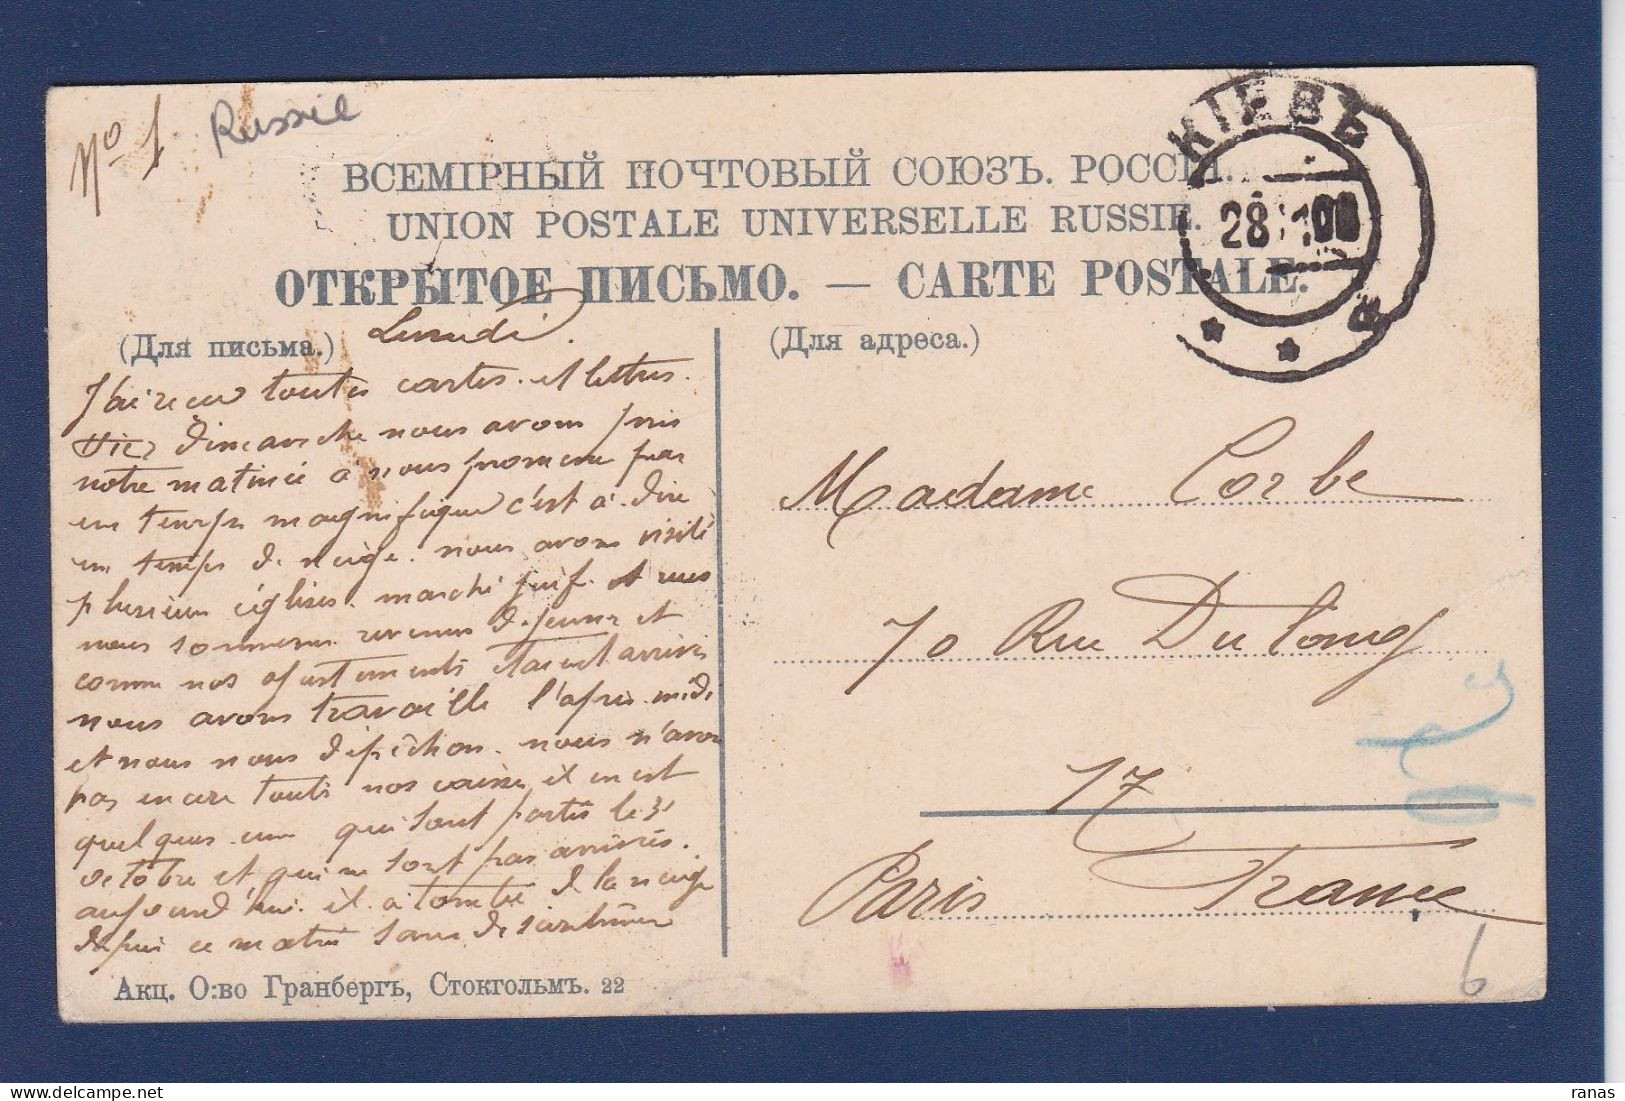 No 1
Russie
ВСЕМІРНЫЙ ПОЧТОВЫЙ СОЮЗЪ. РОССІЯ.
UNION POSTALE UNIVERSELLE RUSSIE.
ОТКРЫТОЕ ПИСЬМО. — CARTE POSTALE.
КІЕВЪ
28
(Для письма.)
(Для адреса.)
Lundi.
J'ai reçu toutes cartes. et lettres.
Hier Dimanche nous avons pris
notre matinée à nous promener par
un temps magnifique c'est à dire
un temps de neige. nous avons visité
plusieurs églises. marché juif. et
nous sommes revenus déjeuner et
comme nos étaient arrivés
nous avons travaillé l'après midi
et nous nous dépêchons. nous n'avons
pas encore toutes nos caisses il en est
quelques unes qui sont parties le 31
octobre et qui ne sont pas arrivées.
aujourd'hui. il a tombé de la neige
depuis ce matin sans
Madame Corbe
70 Rue Dulong
17
Paris France
6
Акц. О:во Гранбергъ, Стокгольмъ. 22
ranas